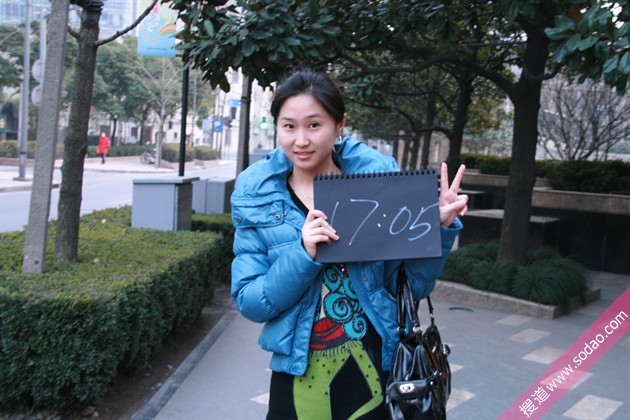 17:05
搜道 www.sodao.com